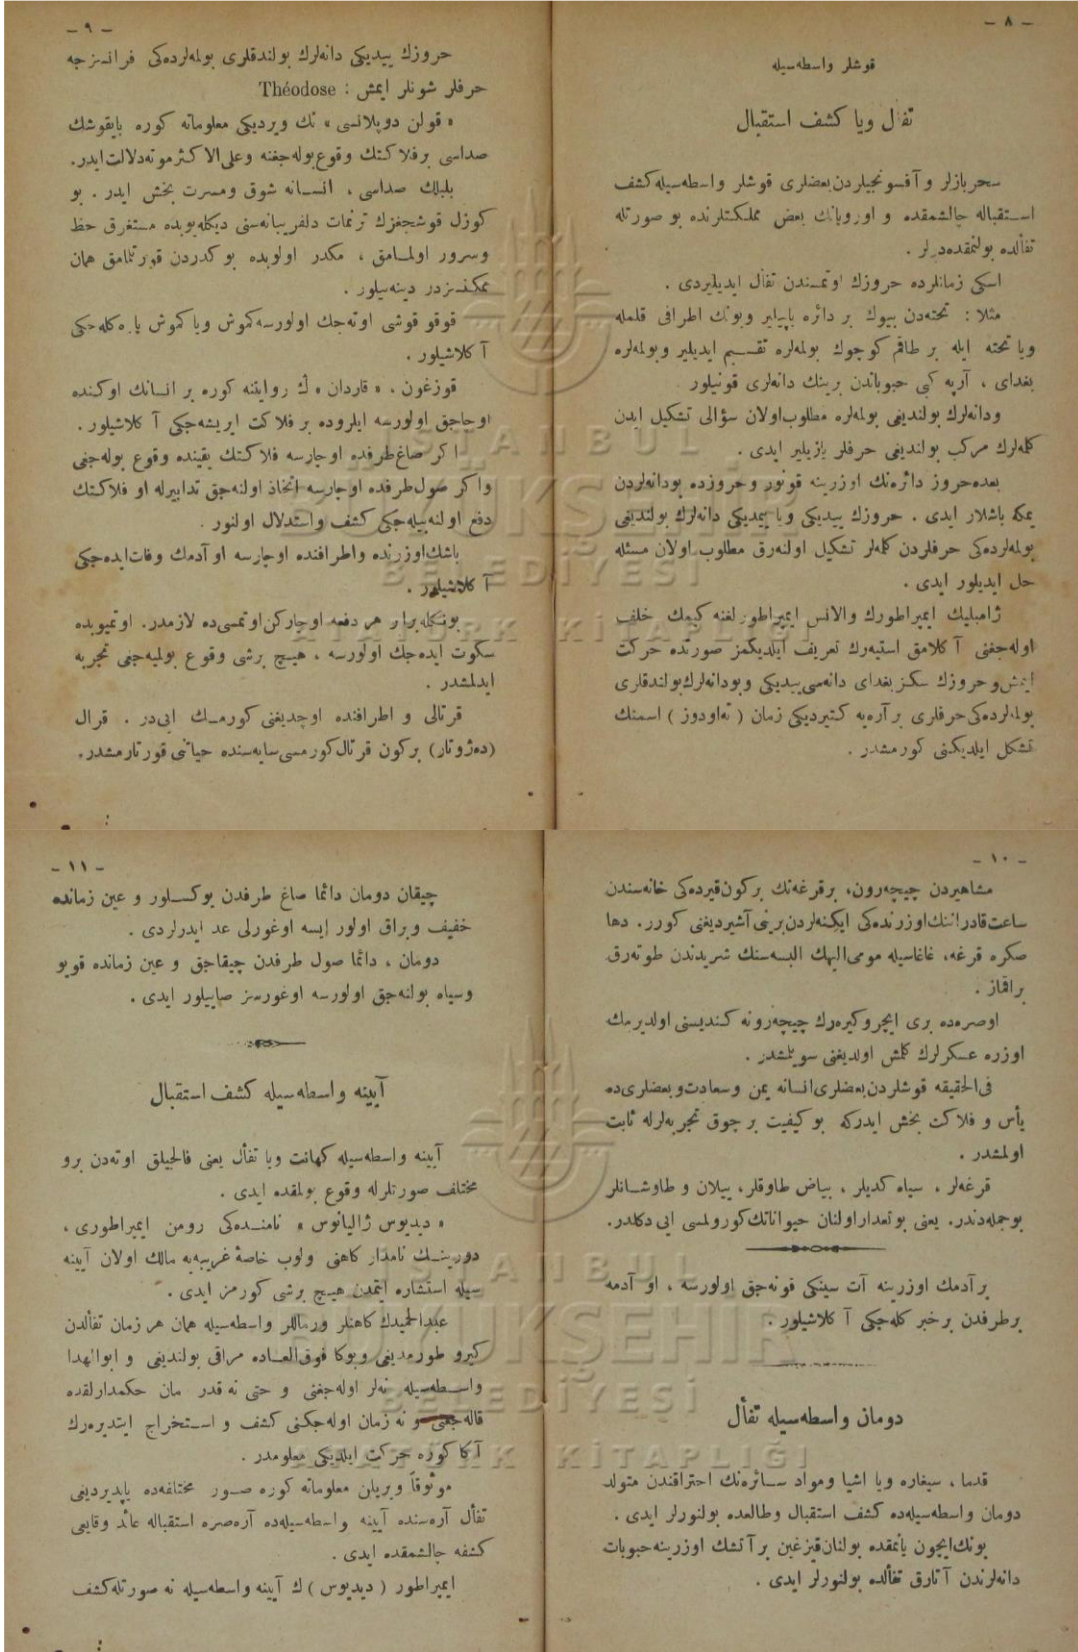 - ٨ -
قوشلر واسطه‌سيله
تفأل ويا كشف استقبال
سحربازلر و آفسونجيلردن بعضلرى قوشلر واسطه‌سيله كشف
استقباله چالشمقده و اوروپانك بعض مملكتلرنده بو صورتله
تفألده بولنمقده‌درلر .
اسكى زمانلرده خروزك اوتمسندن تفأل ايديليردى .
مثلا : تخته‌دن بيوك بر دائره ياپيلير وبونك اطرافى قلمله
ويا تخته ايله بر طاقم كوچوك بولمه‌لره تقسيم ايديلير وبولمه‌لره
بغداى ، آرپه كبى حبوباتدن برينك دانه‌لرى قونيلور
ودانه‌لرك بولنديغى بولمه‌لره مطلوب اولان سؤالى تشكيل ايدن
كلمه‌لرك مركب بولنديغى حرفلر يازيلير ايدى .
بعده خروز دائره‌نك اوزرينه قونور وخروزده بودانه‌لردن
يمكه باشلار ايدى . خروزك ييديكى ويا ييمديكى دانه‌لرك بولنديغى
بولمه‌لرده‌كى حرفلردن كلمه‌لر تشكيل اولنه‌رق مطلوب اولان مسئله
حل ايديلور ايدى .
ژامبليك ايمپراطورك والانس ايمپراطورلغنه كيمك خلف
اوله‌جغنى آكلامق استيه‌رك تعريف ايلديكمز صورتده حركت
ايتمش و خروزك سكز بغداى دانه‌سى ييديكى وبودانه‌لرك بولندقلرى
بولمه‌لرده‌كى حرفلرى بر آره‌يه كتيرديكى زمان ( ته‌اودوز ) اسمنك
تشكل ايلديكنى كورمشدر .
- ٩ -
خروزك ييديكى دانه‌لرك بولندقلرى بولمه‌لرده‌كى فرانسزجه
حرفلر شونلر ايمش : Théodose
« قولن دوپلانسى » نك ويرديكى معلوماته كوره بايقوشك
صداسى بر فلاكتك وقوع بوله‌جغنه وعلى الاكثر موته دلالت ايدر.
بلبلك صداسى ، انسانه شوق ومسرت بخش ايدر . بو
كوزل قوشجغزك ترنمات دلفريبانه‌سنى ديكله‌يوبده مستغرق حظ
وسرور اولمامق ، مكدر اولوبده بو كدردن قورتلمامق همان
ممكنسزدر دينه‌بيلور .
قوقو قوشى اوته‌جك اولورسه كموش ويا كموش پاره كله‌جكى
آكلاشيلور .
قوزغون ، « قاردان » ك روايتنه كوره بر انسانك اوكنده
اوچاجق اولورسه ايلروده بر فلاكت ايريشه‌جكى آكلاشيلور .
اكر صاغ طرفده اوچارسه فلاكتك يقينده وقوع بوله‌جغى
واكر صول طرفده اوچارسه اتخاذ اولنه‌جق تدابيرله او فلاكتك
دفع اولنه‌بيله‌جكى كشف واستدلال اولنور .
باشك اوزرنده واطرافنده اوچارسه او آدمك وفات ايده‌جكى
آكلاشيلور .
بونكله برابر هر دفعه اوچاركن اوتمسى‌ده لازمدر. اوتميوبده
سكوت ايده‌جك اولورسه ، هيچ برشى وقوع بولميه‌جغى تجربه
ايدلمشدر .
قرتالى و اطرافنده اوچديغنى كورمك ايى‌در . قرال
(ده‌ژوتار) بركون قرتال كورمسى سايه‌سنده حياتنى قورتارمشدر.
- ١٠ -
مشاهيردن چيچه‌رون، برقرغه‌نك بركون قيرده‌كى خانه‌سندن
ساعت قادراننك اوزرنده‌كى ايكنه‌لردن برينى آشيرديغنى كورر. دها
صكره قرغه، غاغاسيله مومى‌اليهك البسه‌سنك شريدندن طوته‌رق
براقماز .
اوصره‌ده برى ايچرو كيره‌رك چيچه‌رونه كنديسنى اولديرمك
اوزره عسكرلرك كلمش اولديغنى سويلمشدر .
فى الحقيقه قوشلردن بعضلرى انسانه يمن وسعادت و بعضلرى‌ده
يأس و فلاكت بخش ايدركه بو كيفيت بر چوق تجربه‌لرله ثابت
اولمشدر .
قرغه‌لر ، سياه كديلر ، بياض طاوقلر، ييلان و طاوشانلر
بوجمله‌دندر. يعنى بو تعداد اولنان حيواناتك كورولمسى ايى دكلدر.
بر آدمك اوزرينه آت سينكى قونه‌جق اولورسه ، او آدمه
برطرفدن برخبر كله‌جكى آكلاشيلور .
دومان واسطه‌سيله تفأل
قدما ، سيغاره ويا اشيا ومواد سائره‌نك احتراقندن متولد
دومان واسطه‌سيله‌ده كشف استقبال وطالعده بولنورلر ايدى .
بونك ايچون يانمقده بولنان قيزغين بر آتشك اوزرينه حبوبات
دانه‌لرندن آتارق تفألده بولنورلر ايدى .
- ١١ -
چيقان دومان دائما صاغ طرفدن يوكسلور و عين زمانده
خفيف وبراق اولور ايسه اوغورلى عد ايدرلردى .
دومان ، دائما صول طرفدن چيقاجق و عين زمانده قويو
وسياه بولنه‌جق اولورسه اوغورسز صاييلور ايدى .
آيينه واسطه‌سيله كشف استقبال
آيينه واسطه‌سيله كهانت ويا تفأل يعنى فالجيلق اوته‌دن برو
مختلف صورتلرله وقوع بولمقده ايدى .
« ديديوس ژاليانوس » نامنده‌كى رومن ايمپراطورى ،
دورينك نامدار كاهنى اولوب خاصهٔ غريبه‌يه مالك اولان آيينه
سيله استشاره ايتمدن هيچ برشى كورمز ايدى .
عبدالحميدك كاهنلر ورماللر واسطه‌سيله همان هر زمان تفألدن
كيرو طورمديغى وبوكا فوق‌العاده مراقى بولنديغى و ابوالهدا
واسطه‌سيله نه‌لر اوله‌جغنى و حتى نه قدر زمان حكمدارلقده
قاله‌جغنى و نه زمان اوله‌جكنى كشف و استخراج ايتديره‌رك
آكا كوره حركت ايلديكى معلومدر .
موثوقاً ويريلن معلوماته كوره صور مختلفه‌ده ياپديرديغى
تفأل آره‌سنده آيينه واسطه‌سيله‌ده آره‌صره استقباله عائد وقايعى
كشفه چالشمقده ايدى .
ايمپراطور ( ديديوس ) ك آيينه واسطه‌سيله نه صورتله كشف